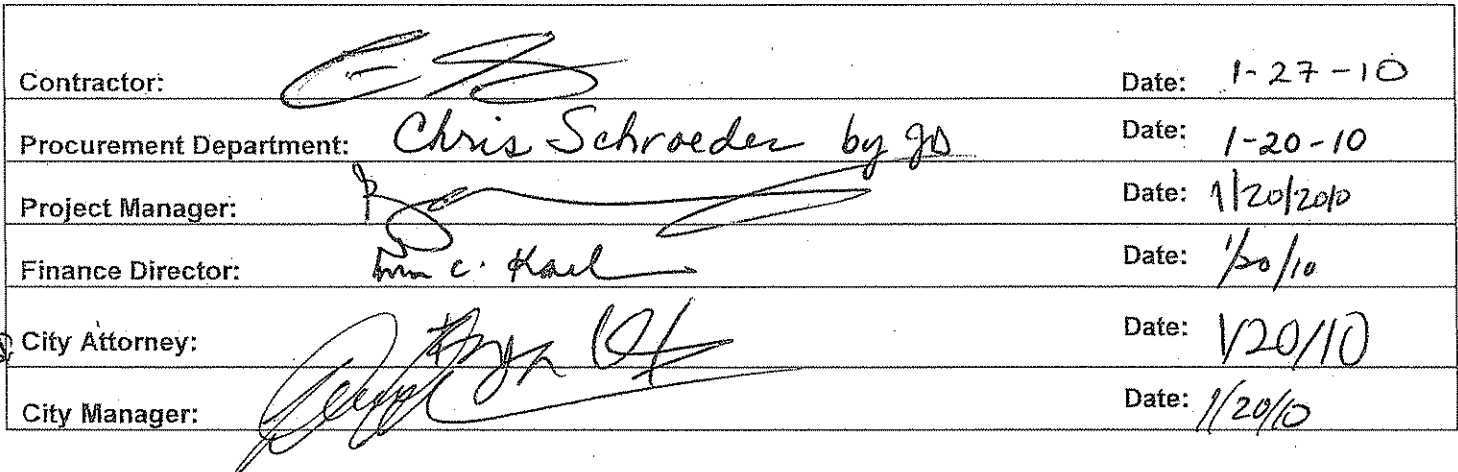 Contractor: Date: 1-27-10
Procurement Department: Chris Schroeder by Date: 1-20-10
Project Manager: Date: 1/20/2010
Finance Director: C. Date: 1/20/10
City Attorney: Date: 1/20/10
City Manager: Date: 1/20/10